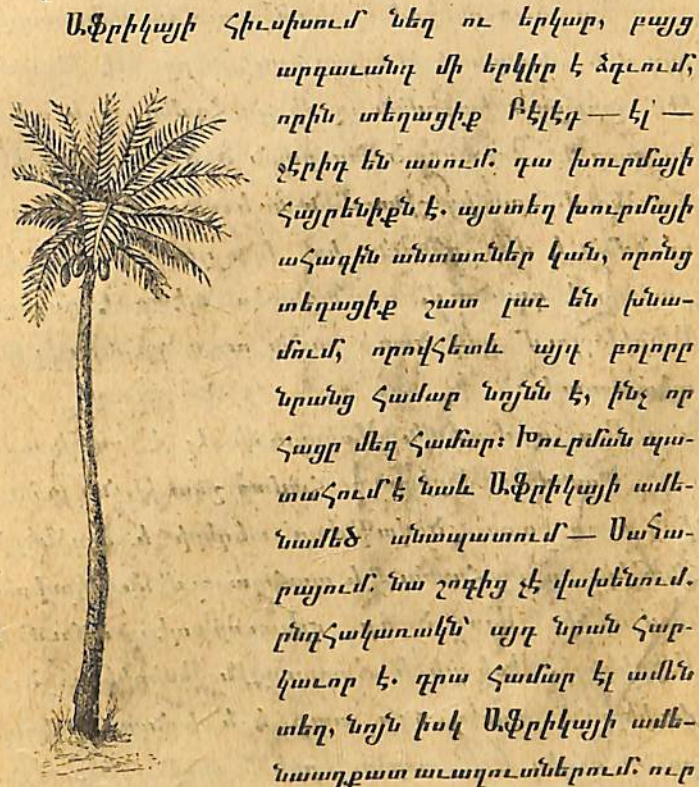 Աֆրիկայի Հիւսիսում նեղ ու երկար, բայց
արդաւանդ մի երկիր է ձգւում,
որին տեղացիք Բէլէդ — էլ —
չէրիդ են ասում. դա խուրմայի
հայրենիքն է. այստեղ խուրմայի
ահագին անտառներ կան, որոնց
տեղացիք շատ լաւ են խնա-
մում, որովհետև այդ բոլորը
նրանց համար նոյնն է, ինչ որ
հացը մեզ համար։ Խուրման պա-
տահում է նաև Աֆրիկայի ամե-
նամեծ անապատում — Սահա-
րայում. նա շոգից չէ վախենում.
ընդհակառակն՝ այդ նրան հար-
կաւոր է. դրա համար էլ ամեն
տեղ, նոյն իսկ Աֆրիկայի ամե-
նաաղքատ աւազուտներում. ուր